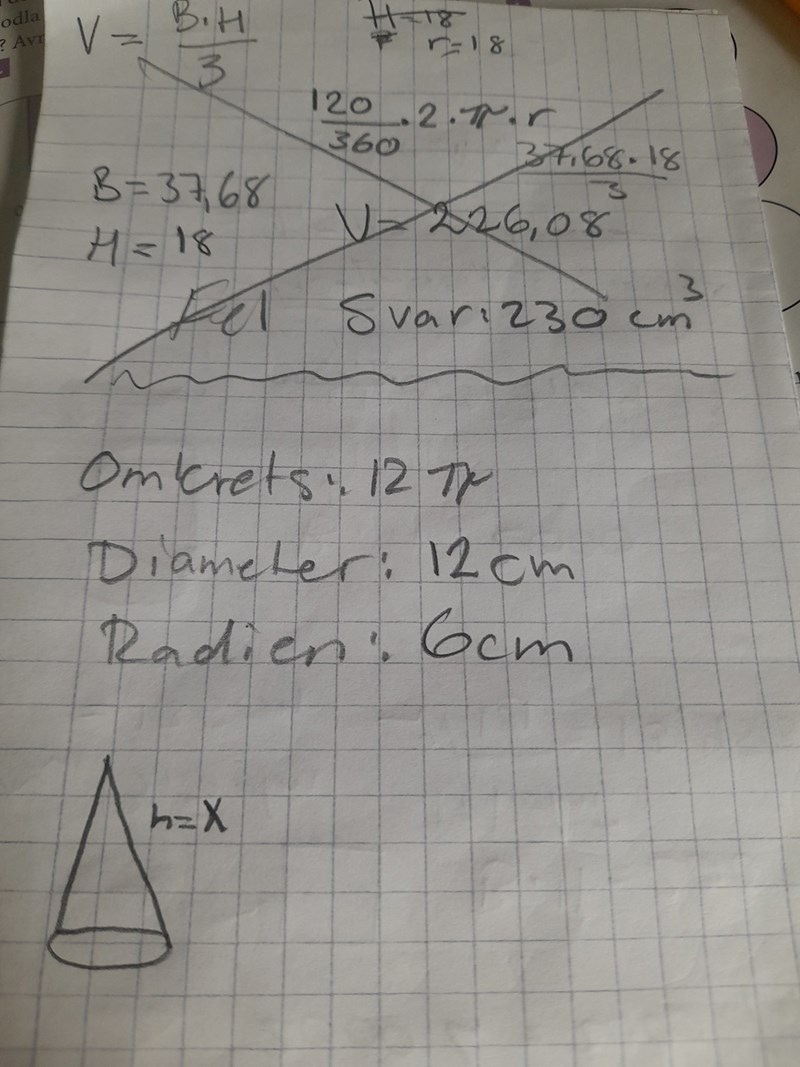 odla
? Avr
V = B·H / 3
H=18
r=18
120/360 · 2 · π · r
37,68 · 18 / 3
B = 37,68
H = 18
V = 226,08
Fel Svar: 230 cm³
Omkrets: 12 π
Diameter: 12 cm
Radien: 6cm
h=X